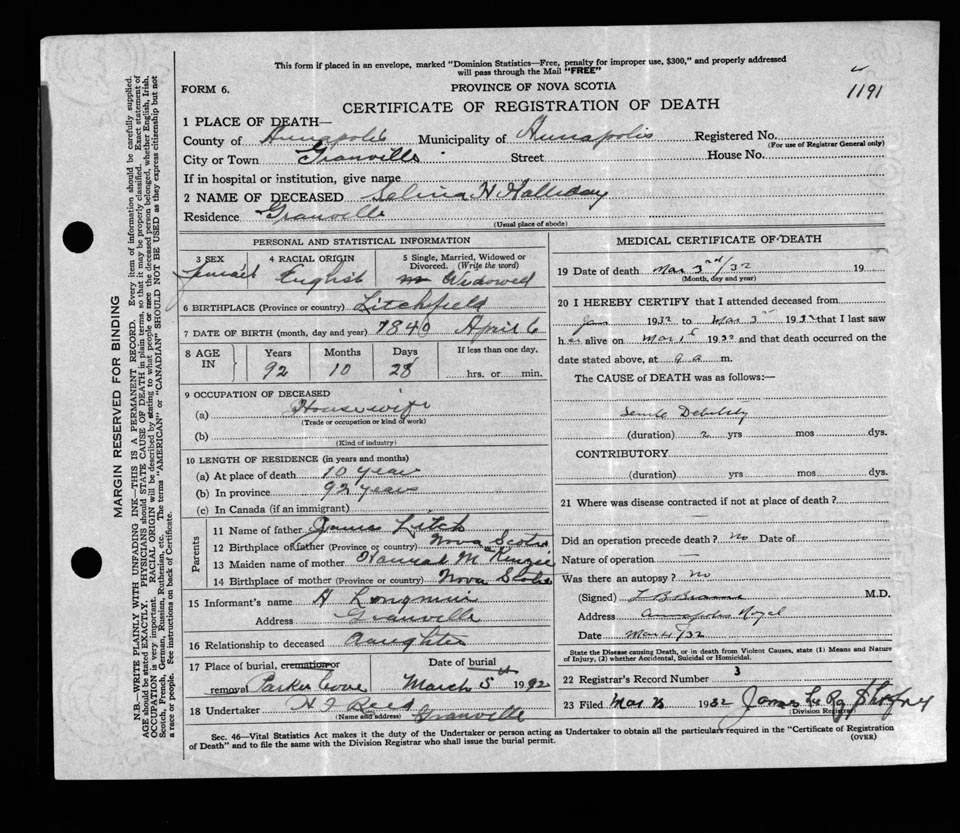 This form if placed in an envelope, marked "Dominion Statistics—Free, penalty for improper use, $300," and properly addressed
will pass through the Mail "FREE"
1191
FORM 6.
PROVINCE OF NOVA SCOTIA
CERTIFICATE OF REGISTRATION OF DEATH
1 PLACE OF DEATH—
County of Annapolis Municipality of Annapolis Registered No.
(For use of Registrar General only)
City or Town Granville Street House No.
If in hospital or institution, give name
2 NAME OF DECEASED Selina H Halliday
Residence Granville
(Usual place of abode)
PERSONAL AND STATISTICAL INFORMATION
3 SEX 4 RACIAL ORIGIN 5 Single, Married, Widowed or Divorced. (Write the word)
Female English Widowed
6 BIRTHPLACE (Province or country) Litchfield
7 DATE OF BIRTH (month, day and year) 1840 April 6
8 AGE IN Years Months Days If less than one day,
92 10 28 hrs. or min.
9 OCCUPATION OF DECEASED
(a) Housewife
(Trade or occupation or kind of work)
(b)
(Kind of industry)
10 LENGTH OF RESIDENCE (in years and months)
(a) At place of death 10 year
(b) In province 92 years
(c) In Canada (if an immigrant)
Parents
11 Name of father James Litch
12 Birthplace of father (Province or country) Nova Scotia
13 Maiden name of mother Hannah McKenzie
14 Birthplace of mother (Province or country) Nova Scotia
15 Informant's name H Longmire
Address Granville
16 Relationship to deceased daughter
17 Place of burial, cremation or removal Parker Cove
Date of burial March 5th 1932
18 Undertaker H J Reed Granville
(Name and address)
MEDICAL CERTIFICATE OF DEATH
19 Date of death Mar 3rd/32 19
(Month, day and year)
20 I HEREBY CERTIFY that I attended deceased from
Jan 1932 to Mar 3 1932 that I last saw
her alive on Mar 1 1932 and that death occurred on the
date stated above, at 9 a m.
The CAUSE of DEATH was as follows:—
Senile Debility
(duration) 2 yrs mos dys.
CONTRIBUTORY
(duration) yrs mos dys.
21 Where was disease contracted if not at place of death ?
Did an operation precede death ? no Date of
Nature of operation —
Was there an autopsy ? no
(Signed) M.D.
Address Annapolis Royal
Date Mar 4/32
State the Disease causing Death, or in death from Violent Causes, state (1) Means and Nature
of Injury, (2) whether Accidental, Suicidal or Homicidal.
22 Registrar's Record Number 3
23 Filed Mar 1932 James
(Division Registrar)
Sec. 46—Vital Statistics Act makes it the duty of the Undertaker or person acting as Undertaker to obtain all the particulars required in the "Certificate of Registration
of Death" and to file the same with the Division Registrar who shall issue the burial permit.
(OVER)
MARGIN RESERVED FOR BINDING
N.B.—WRITE PLAINLY WITH UNFADING INK—THIS IS A PERMANENT RECORD. Every item of information should be carefully supplied.
AGE should be stated EXACTLY. PHYSICIANS should STATE CAUSE OF DEATH in plain terms, so that it may be properly classified. Exact statement of
OCCUPATION is very important. RACIAL ORIGIN will be described by stating to what people or race the deceased person belonged, whether English, Irish,
Scotch, French, German, Russian, Ruthenian, etc. The terms "AMERICAN" or "CANADIAN" SHOULD NOT BE USED as they express citizenship but not
a race or people. See instructions on back of Certificate.